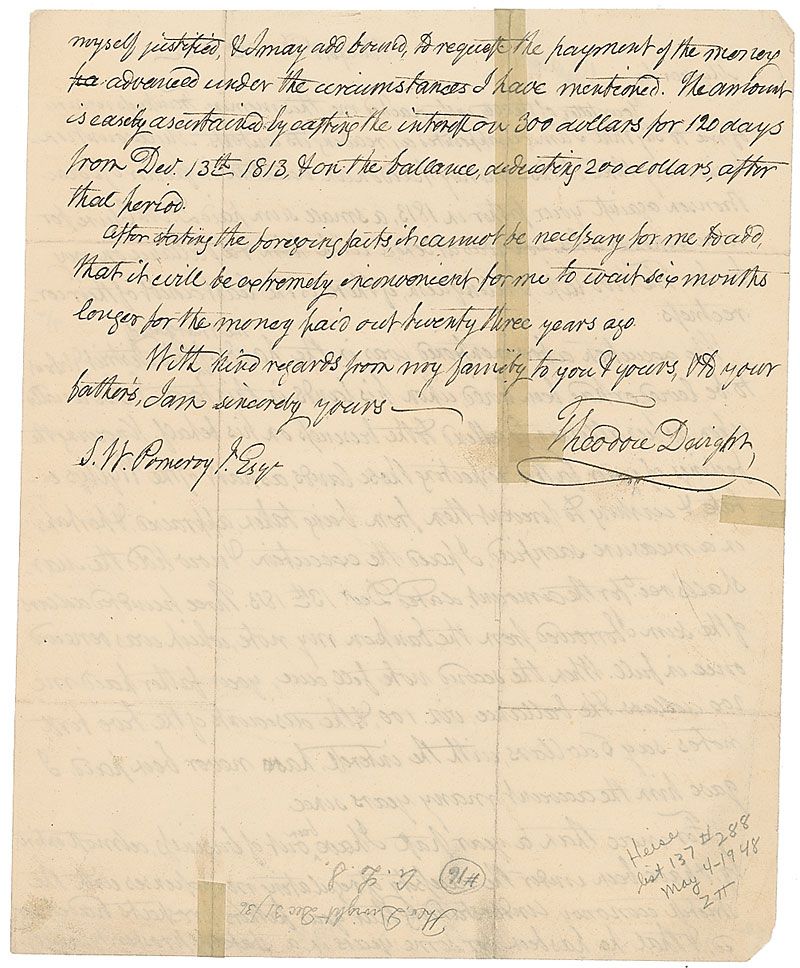 myself justified, & I may add bound, to request the payment of the money
advanced under the circumstances I have mentioned. The amount
is easily ascertained by casting the interest on 300 dollars for 120 days
from Decr. 13th 1813, & on the ballance, deducting 200 dollars, after
that period.
After stating the foregoing facts, it cannot be necessary for me to add,
that it will be extremely inconvenient for me to wait six months
longer for the money paid out twenty three years ago.
With kind regards from my family to you & yours, & to your
father's, I am sincerely yours
Theodore Dwight,
S. W. Pomeroy Jr. Esqr
Heise
list 137 #288
May 4-1948
Z π
#16
A. L. S.
Theo. Dwight Dec 31/36